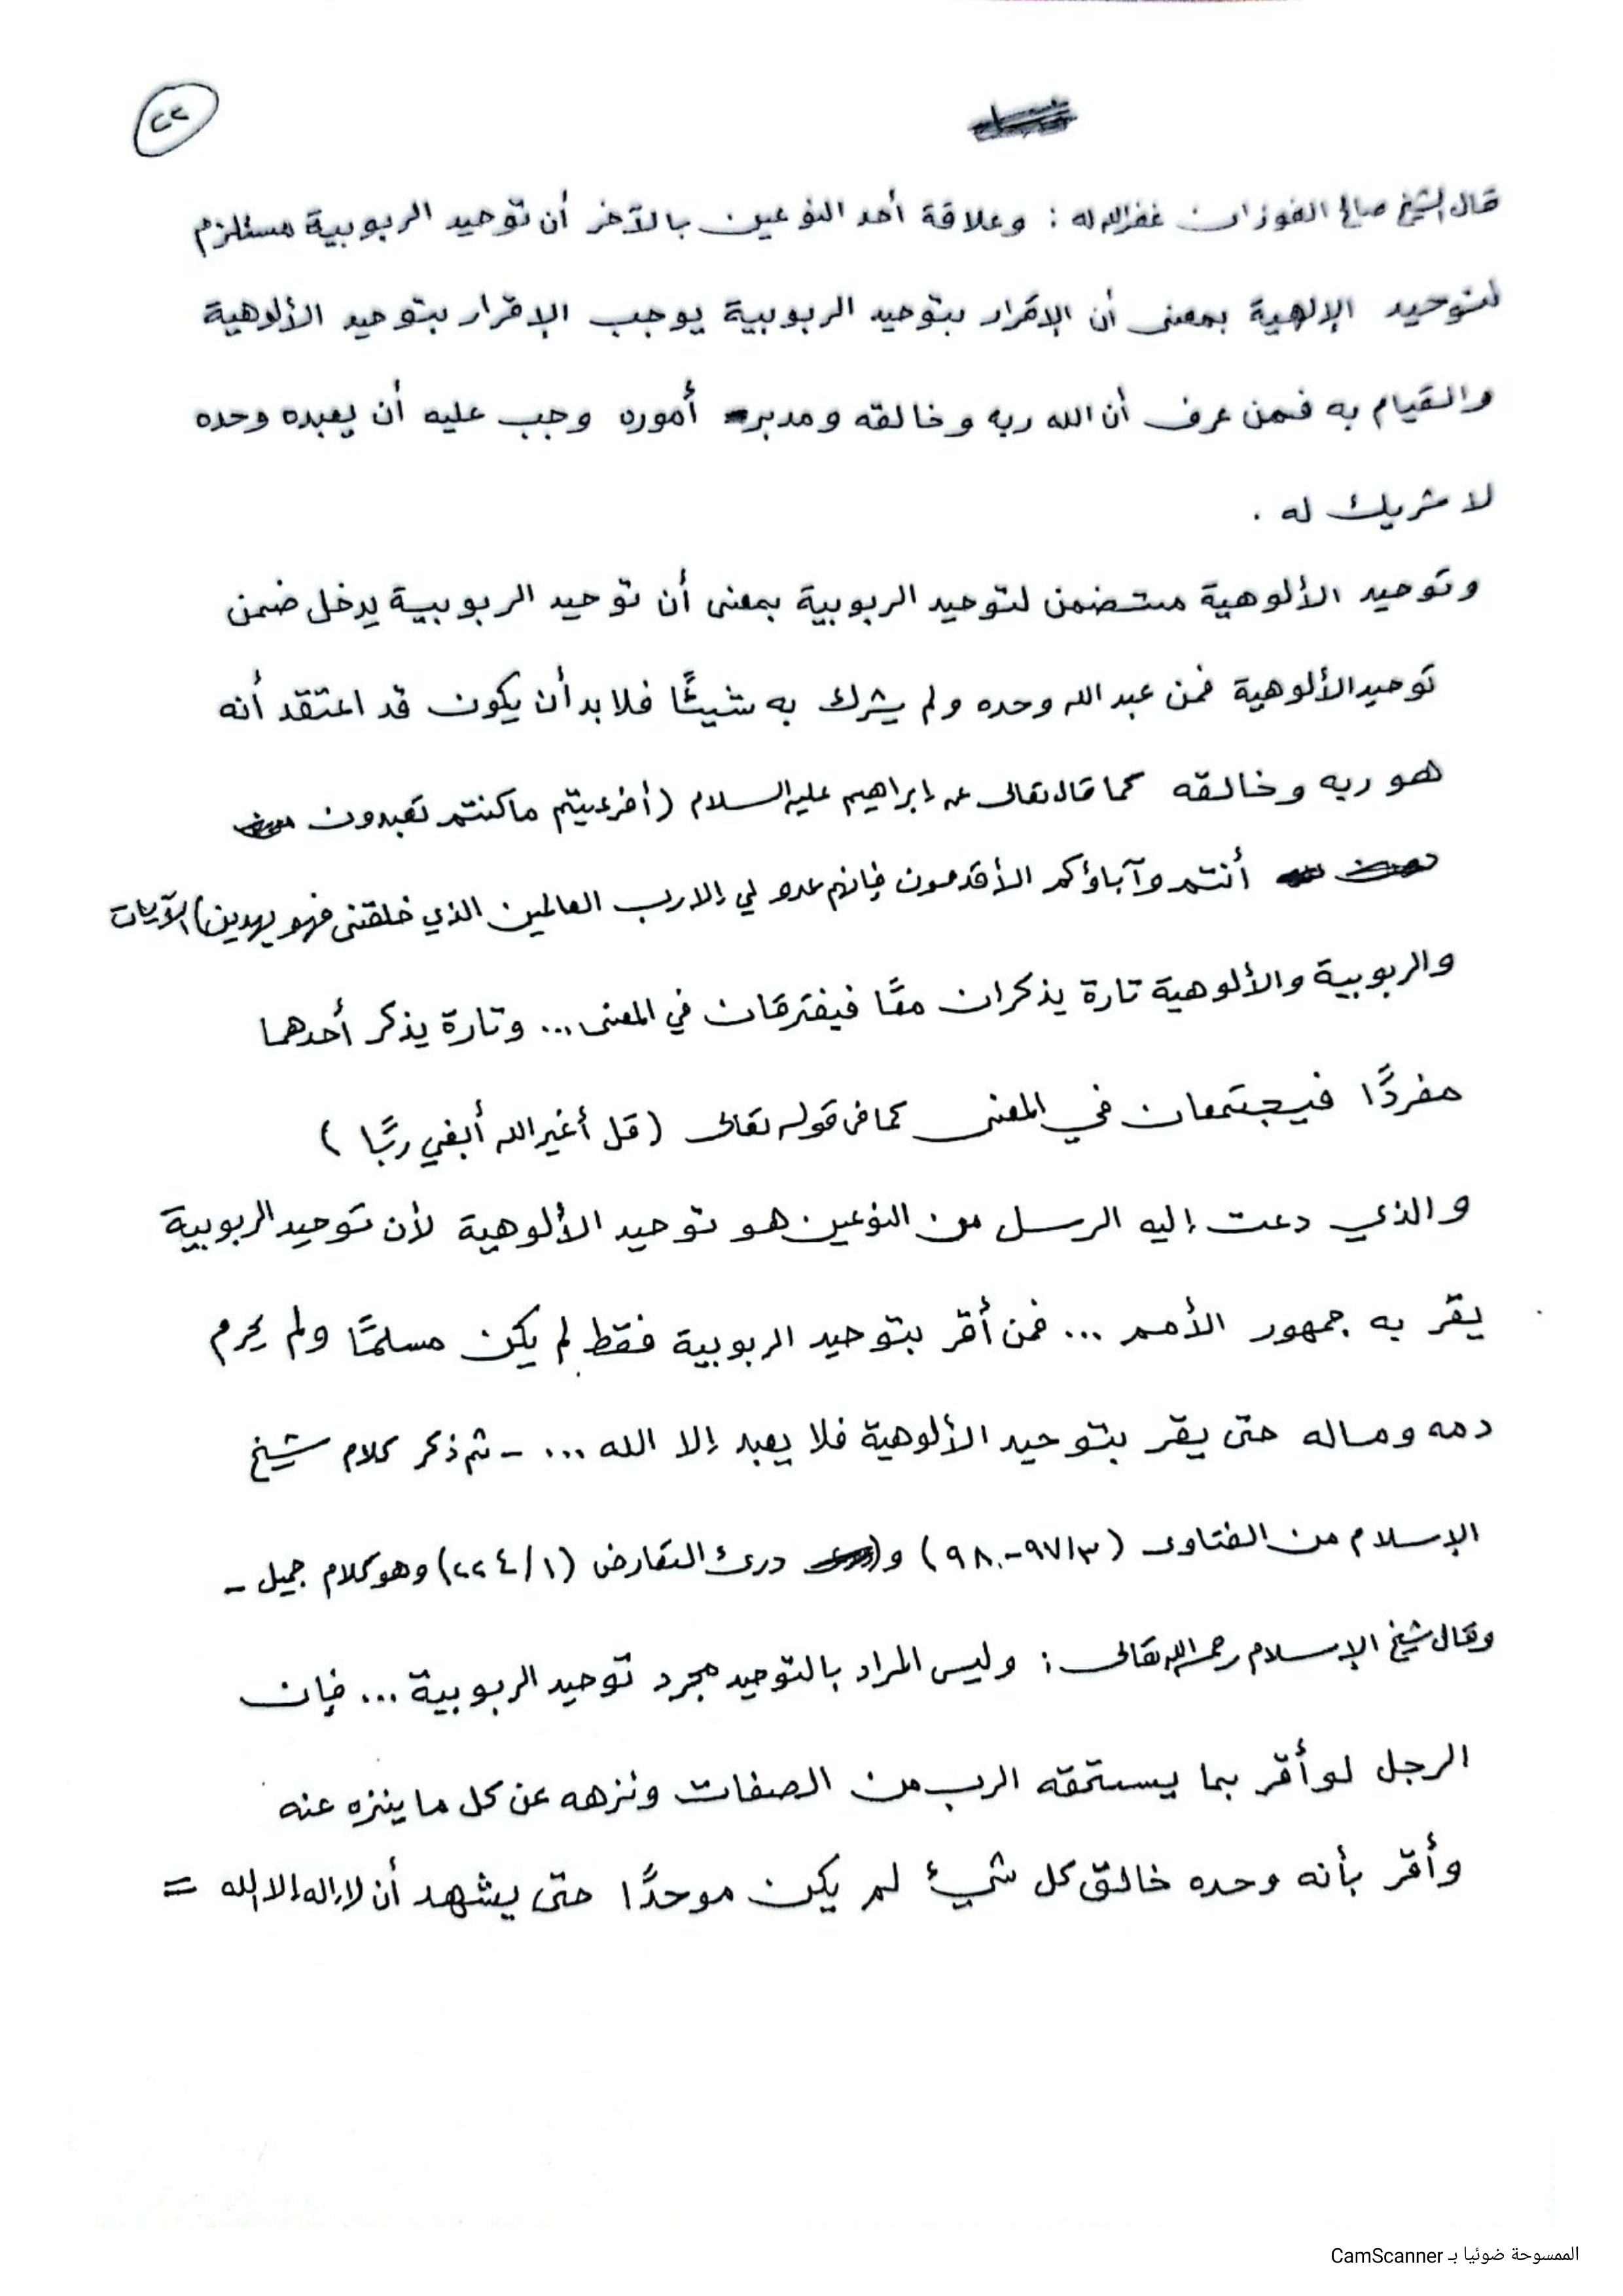 ٢٢
قال الشيخ صالح الفوزان غفر الله له : وعلاقة أحد النوعين بالآخر أن توحيد الربوبية مستلزم
لتوحيد الإلهية بمعنى أن الإقرار بتوحيد الربوبية يوجب الإقرار بتوحيد الألوهية
والقيام به فمن عرف أن الله ربه وخالقه ومدبر أموره وجب عليه أن يعبده وحده
لا شريك له .
وتوحيد الألوهية متضمن لتوحيد الربوبية بمعنى أن توحيد الربوبية يدخل ضمن
توحيد الألوهية فمن عبد الله وحده ولم يشرك به شيئًا فلا بد أن يكون قد اعتقد أنه
هو ربه وخالقه كما قال تعالى عن إبراهيم عليه السلام (أفرءيتم ما كنتم تعبدون
أنتم وآباؤكم الأقدمون فإنهم عدو لي إلا رب العالمين الذي خلقني فهو يهدين) الآيات
والربوبية والألوهية تارة يذكران معًا فيفترقان في المعنى ... وتارة يذكر أحدهما
مفردًا فيجتمعان في المعنى كما في قوله تعالى (قل أغير الله أبغي ربًّا )
والذي دعت إليه الرسل من النوعين هو توحيد الألوهية لأن توحيد الربوبية
يقر به جمهور الأمم ... فمن أقر بتوحيد الربوبية فقط لم يكن مسلمًا ولم يحرم
دمه وماله حتى يقر بتوحيد الألوهية فلا يعبد إلا الله ... - ثم ذكر كلام شيخ
الإسلام من الفتاوى (٣/٩٧-٩٨) و درئ التعارض (١/٢٢٤) وهو كلام جميل -
وقال شيخ الإسلام رحمه الله تعالى : وليس المراد بالتوحيد مجرد توحيد الربوبية ... فإن
الرجل لو أقر بما يستحقه الرب من الصفات ونزهه عن كل ما ينزه عنه
وأقر بأنه وحده خالق كل شيئ لم يكن موحدًا حتى يشهد أن لا إله إلا الله =
الممسوحة ضوئيا بـ CamScanner